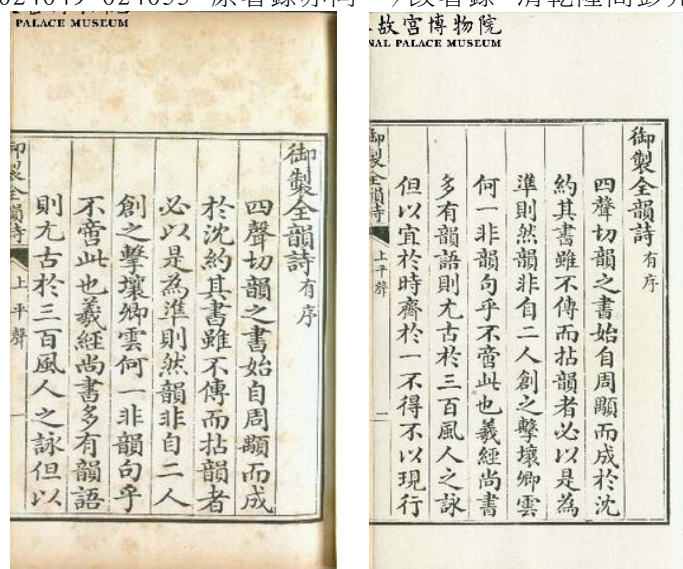 024049-024053
原著錄亦同
改著錄
清乾隆間彭
PALACE MUSEUM
御製全韻詩有序
四聲切韻之書始自周顒而成
於沈約其書雖不傳而拈韻者
必以是為準則然韻非自二人
創之擊壤卿雲何一非韻句乎
不啻此也羲經尚書多有韻語
則尤古於三百風人之詠但以
御製全韻詩
上平聲
一
故宮博物院
NAL PALACE MUSEUM
御製全韻詩有序
四聲切韻之書始自周顒而成於沈
約其書雖不傳而拈韻者必以是為
準則然韻非自二人創之擊壤卿雲
何一非韻句乎不啻此也羲經尚書
多有韻語則尤古於三百風人之詠
但以宜於時齊於一不得不以現行
御製全韻詩
上平聲
一